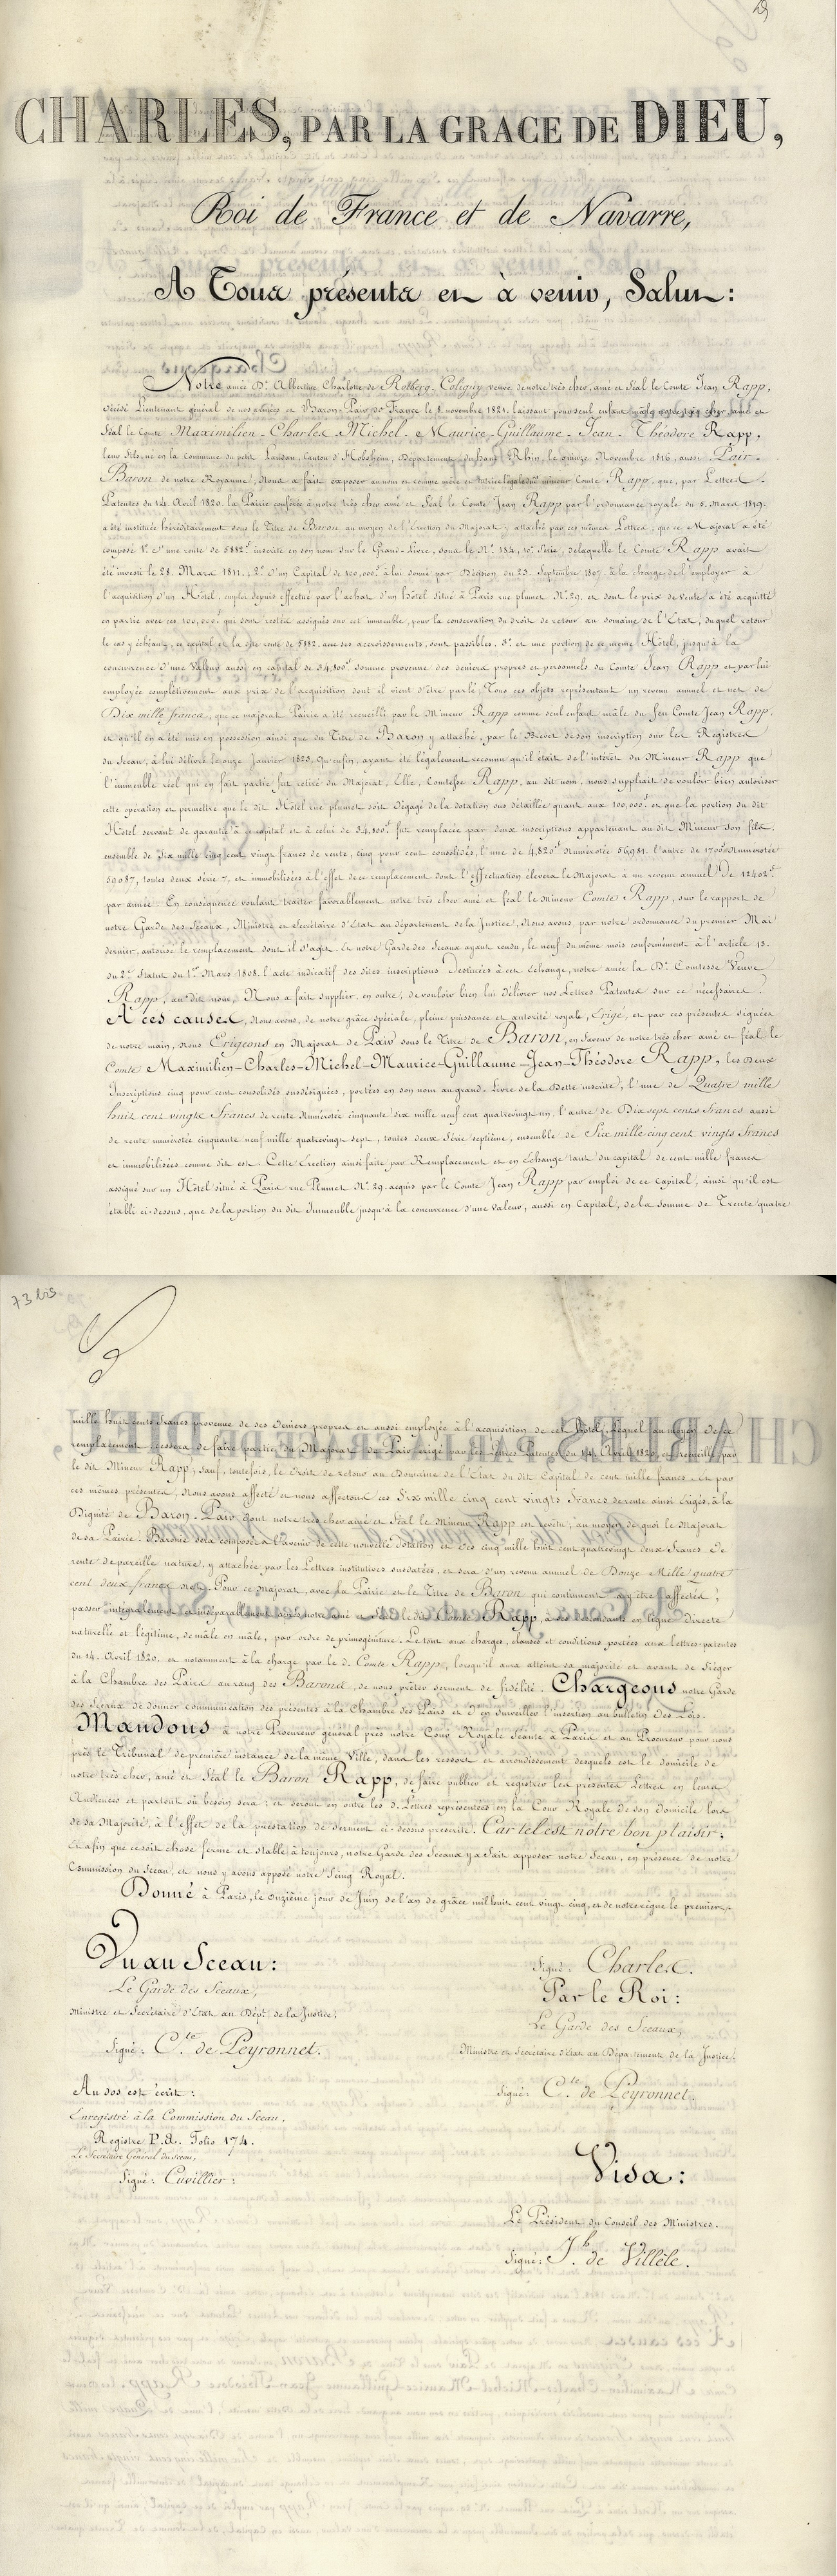 CHARLES, PAR LA GRACE DE DIEU,
Roi de France et de Navarre,
A Tous présents et à venir, Salut:
Notre amée De. Albertine Charlotte de Rotberg-Coligny, veuve de notre très cher, amé et féal le Comte Jean Rapp,
décédé Lieutenant général de nos armées et Baron-Pair de France le 8. novembre 1821. laissant pour seul enfant mâle notre très cher amé et
féal le Comte Maximilien-Charles-Michel-Maurice-Guillaume-Jean-Théodore Rapp,
leur fils, né en la commune du petit Landau, Canton d'Habsheim, Département du haut Rhin, le quinze Novembre 1816, aussi Pair-
Baron de notre Royaume, Nous a fait exposer au nom et comme mère et tutrice légale du mineur Comte Rapp, que, par Lettres
Patentes du 14. Avril 1820. la Pairie conférée à notre très cher amé et féal le Comte Jean Rapp par l'ordonnance royale du 5. Mars 1819.
a été instituée héréditairement sous le Titre de Baron au moyen de l'Érection du Majorat, attaché par ces mêmes Lettres; que ce Majorat a été
composé 1°. d'une rente de 5882.f inscrite en son nom sur le Grand-Livre, sous le No. 184, 10e. Série, de laquelle le Comte Rapp avait
été investi le 28. Mars 1811.; 2°. d'un Capital de 100,000.f à lui donné par Décision du 23. Septembre 1807. à la charge de l'employer à
l'acquisition d'un Hôtel, emploi depuis effectué par l'achat d'un hôtel situé à Paris rue plumet No. 29. et dont le prix de vente a été acquitté
en partie avec ces 100,000.f qui sont restés assignés sur cet immeuble, pour la conservation du droit de retour au domaine de l'État, duquel retour
le cas y échéant, ce capital et la dite rente de 5882. avec ses accroissements, sont passibles. 3°. et une portion de ce même Hôtel, jusqu'à la
concurrence d'une Valeur aussi en capital de 34,800.f somme provenue des deniers propres et personnels du Comte Jean Rapp et par lui
employée complétivement aux prix de l'acquisition dont il vient d'être parlé; Tous ces objets représentant un revenu annuel et net de
Dix mille francs; que ce majorat Pairie a été recueilli par le Mineur Rapp comme seul enfant mâle du feu Comte Jean Rapp,
et qu'il en a été mis en possession ainsi que du Titre de Baron y attaché, par le Brevet de son inscription sur les Registres
du Sceau, à lui délivré le onze Janvier 1823. Qu'enfin, ayant été légalement reconnu qu'il était de l'intérêt du Mineur Rapp que
l'immeuble réel qui en fait partie fut retiré du Majorat, Elle, Comtesse Rapp, au dit nom, nous suppliait de vouloir bien autoriser
cette opération et permettre que le dit Hôtel rue plumet soit dégagé de la dotation sus détaillée quant aux 100,000.f et que la portion du dit
Hôtel servant de garantie à ce capital et à celui de 34,800.f fut remplacée par deux inscriptions appartenant au dit Mineur son fils,
ensemble de Six mille cinq cent vingt francs de rente, cinq pour cent consolidés, l'une de 4,820.f Numérotée 56,981. l'autre de 1700.f Numérotée
59087, toutes deux série 7, et immobilisées à l'effet de ce remplacement dont l'effectuation élevera le Majorat à un revenu annuel de 12402.f
par année. En conséquence voulant traiter favorablement notre très cher amé et féal le Mineur Comte Rapp, sur le rapport de
notre Garde des Sceaux, Ministre et Secrétaire d'État au département de la Justice, Nous avons, par notre ordonnance du premier Mai
dernier, autorisé le remplacement dont il s'agit. Et notre Garde des Sceaux ayant rendu, le neuf du même mois conformément à l'article 13.
du 2e. Statut du 1er. Mars 1808. l'acte indicatif des dites inscriptions destinées à cet Échange, notre amée la De. Comtesse Veuve
Rapp, au dit nom, Nous a fait supplier, en outre, de vouloir bien lui délivrer nos Lettres Patentes sur ce nécessaires.
A ces causes, Nous avons, de notre grâce spéciale, pleine puissance et autorité royale, Érigé, et par ces présentes signées
de notre main, Nous Érigeons en Majorat de Pair sous le Titre de Baron, en faveur de notre très cher amé et féal le
Comte Maximilien-Charles-Michel-Maurice-Guillaume-Jean-Théodore Rapp, les Deux
Inscriptions cinq pour cent consolidés susdésignées, portées en son nom au grand-Livre de la Dette inscrite, l'une de Quatre mille
huit cent vingts Francs de rente Numérotée cinquante six mille neuf cent quatrevingt un, l'autre de Dix sept cents Francs aussi
de rente numérotée cinquante neuf mille quatrevingt sept, toutes deux Série septième, ensemble de Six mille cinq cent vingts Francs
et immobilisées comme dit est. Cette Érection ainsi faite par Remplacement et en échange tant du capital de cent mille francs
assigné sur un Hôtel situé à Paris rue Plumet No. 29. acquis par le Comte Jean Rapp par emploi de ce capital, ainsi qu'il est
établi ci-dessus, que de la portion du dit Immeuble jusqu'à la concurrence d'une valeur, aussi en Capital, de la somme de Trente quatre
73 bis
mille huit cents francs provenue de ses Deniers propres et aussi employée à l'acquisition de cet Hôtel, lequel au moyen de ce
remplacement cessera de faire partie du Majorat de Pair érigé par les Lettres Patentes du 14. Avril 1820, et recueilli par
le dit Mineur Rapp; sauf, toutefois, le droit de retour au Domaine de l'État du dit Capital de cent mille francs. Et par
ces mêmes présentes, Nous avons affecté et nous affectons ces Six mille cinq cent vingts Francs de rente ainsi érigés, à la
Dignité de Baron-Pair dont notre très cher amé et féal le Mineur Rapp est revêtu; au moyen de quoi le Majorat
de sa Pairie-Baronie sera composé à l'avenir de cette nouvelle dotation et des cinq mille huit cent quatrevingt deux francs de
rente de pareille nature, y attachée par les Lettres institutives susdatées, et sera d'un revenu annuel de Douze Mille quatre
cent deux francs net. Pour ce majorat, avec la Pairie et le Titre de Baron qui continuent d'y être affectés,
passer intégralement et inséparablement après notre amé et féal le dit Comte Rapp, à ses descendants en ligne directe
naturelle et légitime, de mâle en mâle, par ordre de primogéniture. Le tout aux charges, clauses et conditions portées aux lettres-patentes
du 14. Avril 1820. et notamment à la charge par le d. Comte Rapp, lorsqu'il aura atteint sa majorité et avant de Siéger
à la Chambre des Pairs au rang des Barons, de nous prêter serment de fidélité. Chargeons notre Garde
des Sceaux de donner communication des présentes à la Chambre des Pairs et d'en surveiller l'insertion au bulletin des Lois.
Mandons à notre Procureur général près notre Cour Royale séante à Paris et au Procureur pour nous
près le Tribunal de première instance de la même Ville, dans les ressort et arrondissement desquels est le domicile de
notre très cher, amé et féal le Baron Rapp, de faire publier et registrer les présentes Lettres en leurs
Audiences et partout où besoin sera; et seront en outre les d. Lettres représentées en la Cour Royale de son domicile lors
de sa Majorité, à l'effet de la prestation de Serment ci-dessus prescrite. Car tel est notre bon plaisir;
Et afin que ce soit chose ferme et stable à toujours, notre Garde des Sceaux y a fait apposer notre Sceau, en présence de notre
Commission du Sceau, et nous y avons apposé notre Seing Royal.
Donné à Paris, le onzième jour de Juin de l'an de grâce mil huit cent vingt cinq, et de notre règne le premier.
Vu au Sceau:
Le Garde des Sceaux,
Ministre et Secrétaire d'État au Dépt. de la Justice,
Signé: C.te de Peyronnet.
Au dos est écrit:
Enregistré à la Commission du Sceau,
Registre P.A. Folio 174.
Le Secrétaire Général du sceau,
Signé: Cuvillier.
Signé: Charles.
Par le Roi:
Le Garde des Sceaux,
Ministre et Secrétaire d'état au Département de la Justice.
Signé: C.te de Peyronnet.
Visa:
Le Président du Conseil des Ministres.
Signé: J.h de Villèle.